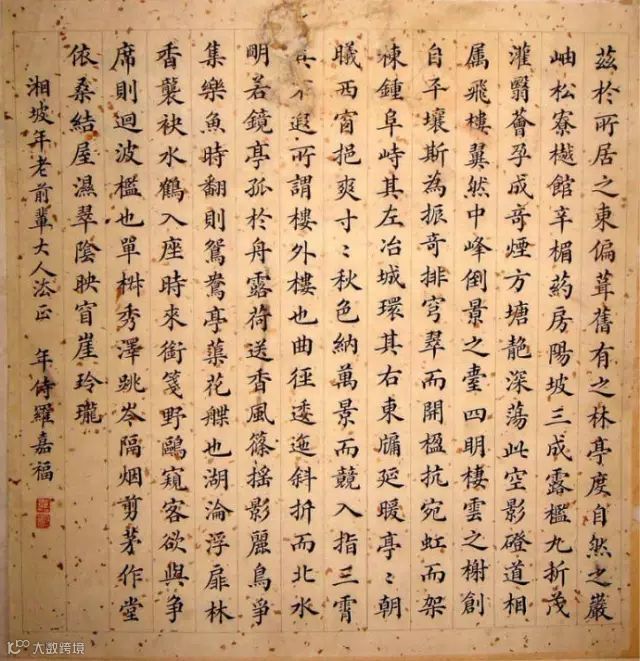 茲於所居之東偏葺舊有之林亭度自然之巖
岫松寮樾館辛楣葯房陽坡三成露檻九折茂
灌翳薈孕成奇煙方塘靘深蕩此空影磴道相
属飛樓翼然中峰倒景之臺四明棲雲之榭創
自平壤斯為振奇排穹翠而開楹抗宛虹而架
棟鍾阜峙其左冶城環其右東牖延暖亭亭朝
曦西窗挹爽寸寸秋色納萬景而競入指三霄
其不遐所謂樓外樓也曲徑逶迤斜折而北水
明若鏡亭孤於舟露荷送香風篠摇影麗鳥爭
集樂魚時翻則鴛鴦亭蕖花艓也湖淪浮扉林
香襲袂水鶴入座時來銜箋野鷗窺客欲與爭
席則迴波檻也單椒秀澤跳岑隔烟剪茅作堂
依桑結屋濕翠陰映窗崖玲瓏
湘坡年老前輩大人法正 年侍羅嘉福
大数跨境